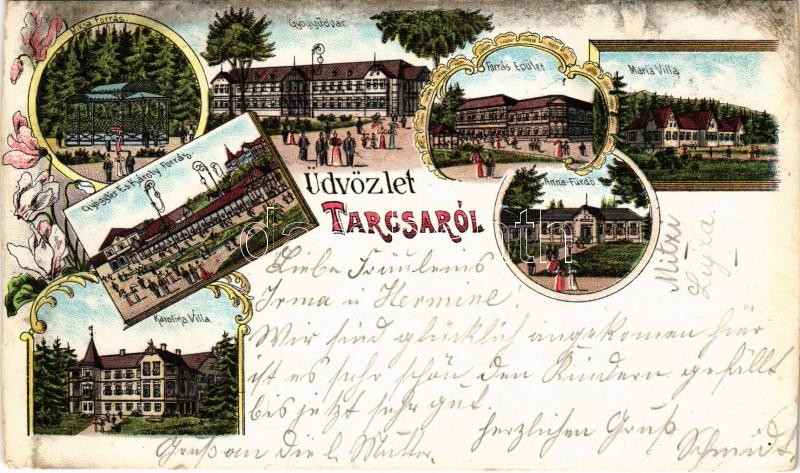 Miksa Forrás.
Gyógyudvar
Forrás Épület
Maria Villa
Gyógytér És Károly Forrás.
Anna-Fürdő.
Üdvözlet
TARCSARÓL
Karolina Villa
Liebe Fräuleins
Irma u Hermine!
Wir sind glücklich angekomen hier
ist es sehr schön den Kindern gefällt
bis jetzt sehr gut.
herzlichen Gruß
Gruß an die l. Mutter.
Schmidt